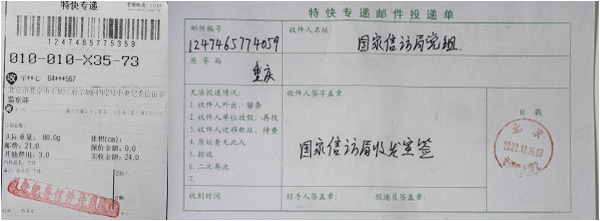 特快专递
1247465775359
010-010-X35-73
64***567
监察部
实际重量: 80.0g 体积(cm):
邮费: 21.0 保价金额: 0.0
其他费用: 3.0 实收金额: 24.0
特快专递邮件投递单
邮件编号
1247465774059
收件人名址
国家信访局党组.
原寄局
重庆
无法投递情况:
1. 收件人外出, 留条
2. 收件人单位放假, 再投
3. 收件人迁移新址, 待查
4. 原址查无此人
5. 拒收
6. 二次再次
7.
收件人签字盖章
国家信访局收发室签
日戳
北京
2022.12.26.00
收到时间
经手人签盖章
投递员签盖章